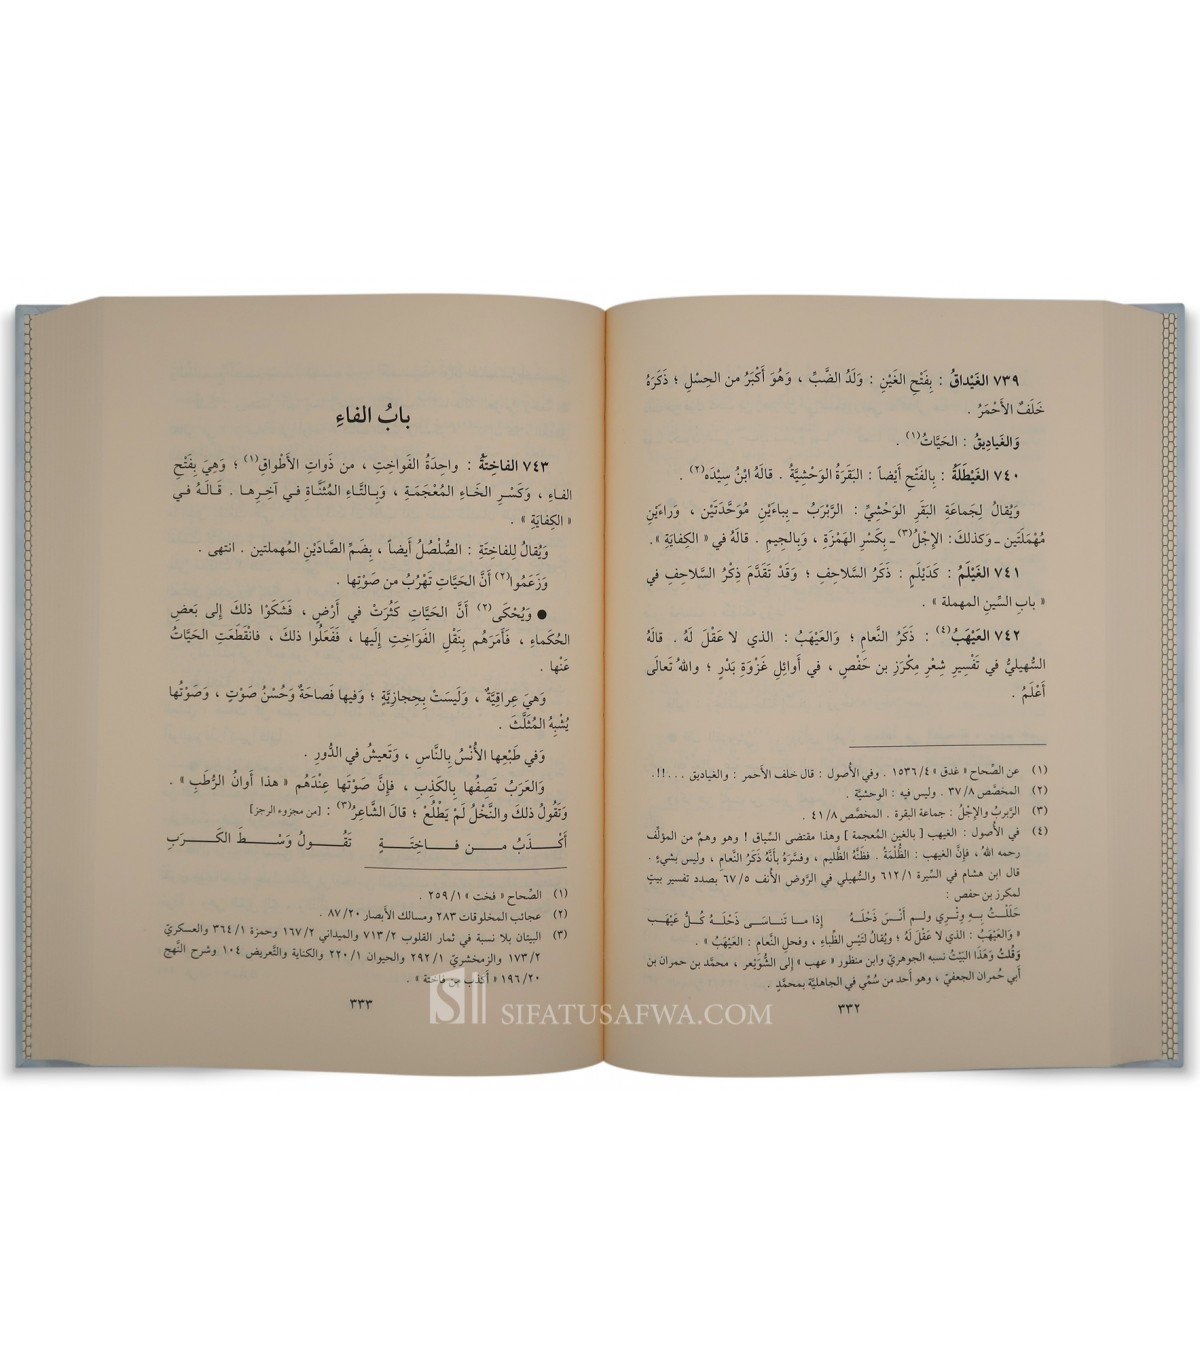 ٧٣٩ الغَيْداقُ : بِفَتْحِ الغَيْنِ : وَلَدُ الضَّبِّ ، وَهُوَ أَكْبَرُ من الحِسْلِ ؛ ذَكَرَهُ
خَلَفٌ الأَحْمَرُ .
وَالغَيادِيقُ : الحَيَّاتُ(١) .
٧٤٠ الغَيْطَلَةُ : بِالفَتْحِ أَيْضاً : البَقَرَةُ الوَحْشِيَّةُ . قالَهُ ابْنُ سِيْدَه(٢) .
وَيُقالُ لِجَماعَةِ البَقَرِ الوَحْشِيِّ : الرَّبْرَبُ ـ بِباءَيْنِ مُوَحَّدَتَيْن ، وَراءَيْنِ
مُهْمَلَتَين ـ وَكذلكَ : الإِجْلُ(٣) ـ بِكَسْرِ الهَمْزَةِ ، وَبِالجِيمِ . قالهُ في « الكِفايَةِ » .
٧٤١ الغَيْلَمُ : كَدَيْلَمٍ : ذَكَرُ السَّلاحِفِ ؛ وَقَدْ تَقَدَّمَ ذِكْرُ السَّلاحِفِ في
« بابِ السِّينِ المهملة » .
٧٤٢ العَيْهَبُ(٤) : ذَكَرُ النَّعامِ ؛ وَالعَيْهَبُ : الذي لا عَقْلَ لَهُ . قالهُ
السُّهيليُّ في تَفْسِيرِ شِعْرِ مِكْرَزِ بن حَفْصٍ ، في أَوائِلِ غَزْوَةِ بَدْرٍ ؛ واللهُ تَعالَى
أَعْلَمُ .
(١) عن الصِّحاح « غدق » ١٥٣٦/٤ . وفي الأُصول : قال خلف الأحمر : والغياديق . . . !! .
(٢) المخصَّص ٣٧/٨ . وليس فيه : الوحشيَّة .
(٣) الرَّبربُ والإِجْلُ : جماعة البقرة . المخصَّص ٤١/٨ .
(٤) في الأُصول : الغيهب [ بالغين المُعجمة ] وهذا مقتضى السِّياق ! وهو وهمٌ من المؤلِّف
رحمه اللهُ ، فإنَّ الغيهب : الظُّلْمَةُ . فظَنَّهُ الظَّليم ، وفسَّرَهُ بأنَّهُ ذَكَرُ النَّعام ، وليس بشيءٍ .
قال ابن هشام في السِّيرة ٦١٢/١ والسُّهيلي في الرَّوض الأُنف ٦٧/٥ بصدد تفسير بيتٍ
لمكرز بن حفص :
حَلَلْتُ بِهِ وِتْرِي ولم أَنْسَ ذَحْلَهُ إذا ما تَناسَى ذَحْلَهُ كُلُّ عَيْهَب
« وَالعَيْهَبُ : الذي لا عَقْلَ لَهُ ؛ ويُقالُ لتَيْسِ الظِّباءِ ، وفحلِ النَّعام : العَيْهَبُ » .
وَقُلتُ وَهَذَا البَيْتُ نسبه الجوهريّ وابن منظور « عهب » إلى الشُّوَيْعر ، محمَّد بن حمران بن
أبي حُمران الجعفيّ ، وهو أحد من سُمِّي في الجاهليَّة بمحمَّدٍ .
٣٣٢
بابُ الفاءِ
٧٤٣ الفاخِتَةُ : واحِدَةُ الفَواخِتِ ، من ذَواتِ الأَطْواقِ(١) ؛ وَهِيَ بِفَتْحِ
الفاءِ ، وَكَسْرِ الخَاءِ المُعْجَمَةِ ، وَبِالتَّاءِ المُثَنَّاةِ في آخِرِها . قَالَـهُ في
« الكِفايَةِ » .
وَيُقالُ لِلفاخِتَةِ : الصُّلْصُلُ أَيضاً ، بِضَمِّ الصَّادَيْنِ المُهملتين . انتهى .
وَزَعَمُوا(٢) أَنَّ الحَيَّاتِ تَهْرُبُ من صَوْتِها .
● وَيُحْكَى(٢) أَنَّ الحَيَّاتِ كَثُرَتْ في أَرْضٍ ، فَشَكَوْا ذلكَ إِلى بَعضِ
الحُكَماءِ ، فَأَمَرَهُم بِنَقْلِ الفَواخِتِ إِليها ، فَفَعَلُوا ذلكَ ، فانْقَطَعَتِ الحَيَّاتُ
عَنْها .
وَهيَ عِراقِيَّةٌ ، وَلَيسَتْ بِحِجازِيَّةٍ ؛ وَفيها فَصاحَةٌ وَحُسْنُ صَوْتٍ ، وَصَوْتُها
يُشْبِهُ المُثَلَّثَ .
وَفي طَبْعِها الأُنْسُ بِالنَّاسِ ، وَتَعيشُ في الدُّورِ .
وَالعَرَبُ تَصِفُها بِالكَذِبِ ، فإِنَّ صَوْتَها عِنْدَهُم « هذا أَوانُ الرُّطَبِ » .
وَتَقُولُ ذلكَ والنَّخْلُ لَمْ يَطْلُعْ ؛ قالَ الشَّاعِرُ(٣) : [من مجزوء الرجز]
أَكْـذَبُ مـن فـاخِتَـةٍ تَقُـولُ وَسْـطَ الكَـرَبِ
(١) الصِّحاح « فخت » ٢٥٩/١ .
(٢) عجائب المخلوقات ٢٨٣ ومسالك الأبصار ٨٧/٢٠ .
(٣) البيتان بلا نسبة في ثمار القلوب ٧١٣/٢ والميداني ١٦٧/٢ وحمزة ٣٦٤/١ والعسكريّ
١٧٣/٢ والزمخشريّ ٢٩٢/١ والحيوان ٢٢٠/١ والكناية والتَّعريض ١٠٤ وشرح النَّهج
١٩٦/٢٠ « أكذب من فاختة » .
٣٣٣
SIFATUSAFWA.COM